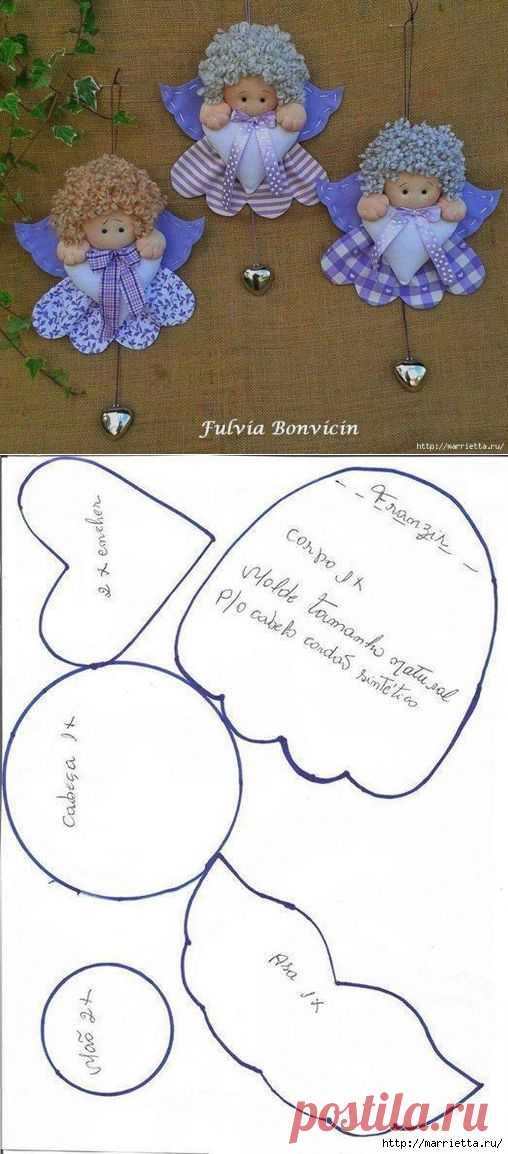 Fulvia Bonvicin
http://marrietta.ru/
2 x encher
Franzir
corpo 1x
Molde tamanho natural
p/o cabelo cordão sintético
Cabeça 1x
Asa 1x
Mão 2x
postila.ru
http://marrietta.ru/